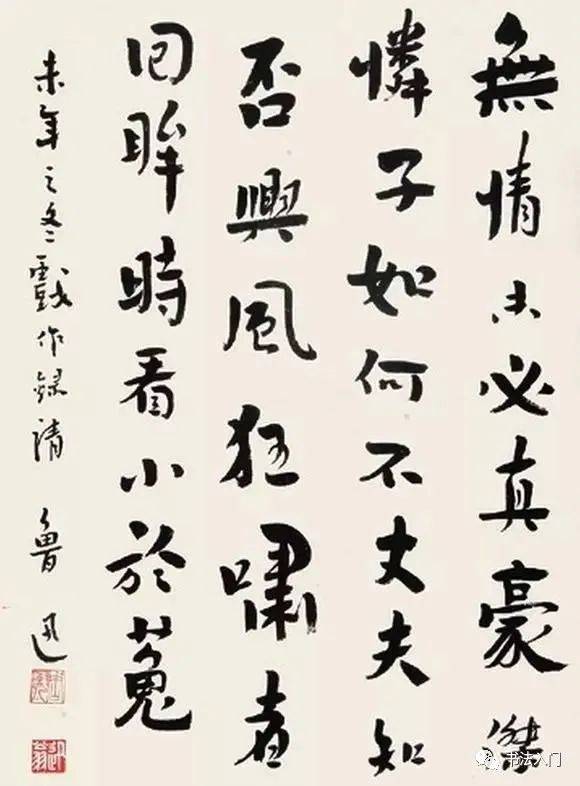 無情未必真豪傑
憐子如何不丈夫知
否興風狂嘯者
回眸時看小於菟
未年之冬戲作錄請 魯迅
书法入门